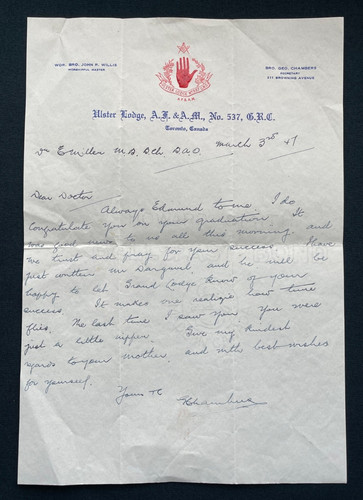 WOR. BRO. JOHN P. WILLIS
WORSHIPFUL MASTER
BRO. GEO. CHAMBERS
SECRETARY
211 BROWNING AVENUE
Ulster Lodge, A.F. & A.M., No. 537, G.R.C.
Toronto, Canada
Dr E Miller M.B. Bch B.A.O. March 3rd 41
Dear Doctor
Always Edmund to me. I do
Congratulate you on your graduation. It
was good news to us all this morning, and
we trust and pray for your success. I have
just written Mr and he will be
happy to let Grand Lodge know of your
success. It makes one realize how time
flies. The last time I saw you, you were
just a little nipper. Give my kindest
regards to your mother, and with best wishes
for yourself.
Yours
Chambers